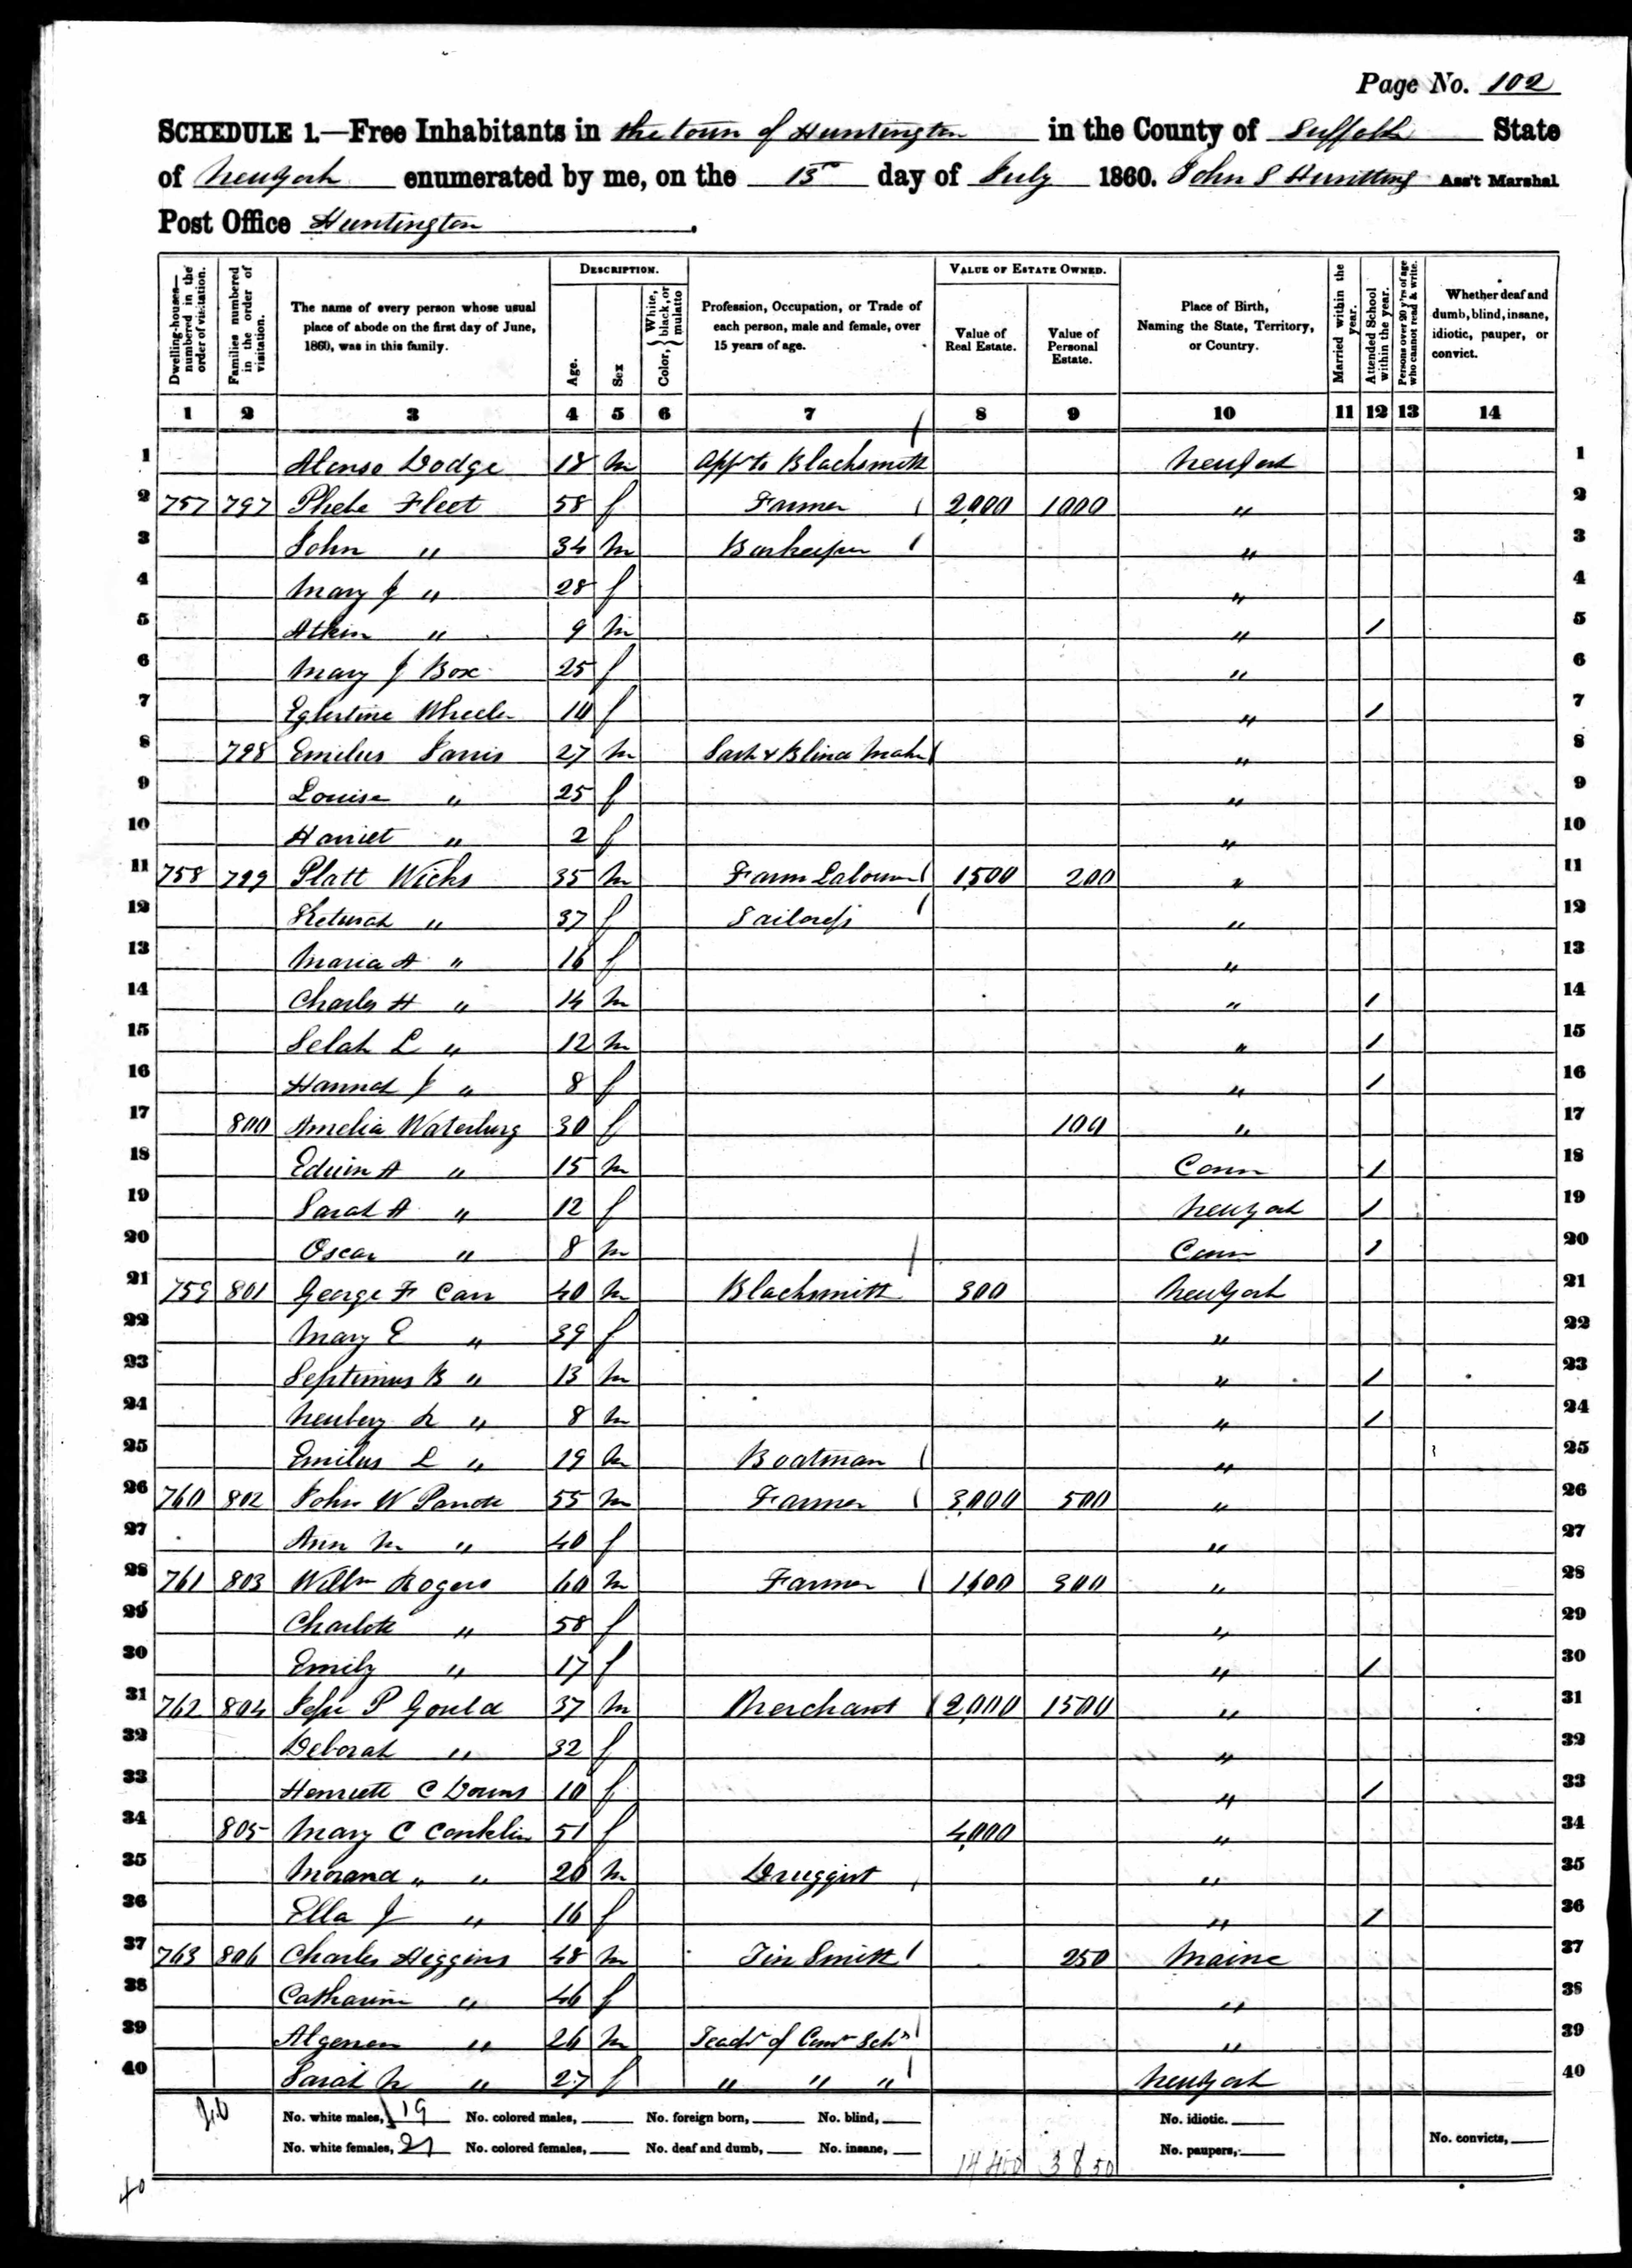 Page No. 102
SCHEDULE 1.—Free Inhabitants in the town of Huntington in the County of Suffolk State
of New York enumerated by me, on the 13th day of July 1860. John S Huntting Ass't Marshal
Post Office Huntington.
Dwelling-houses—numbered in the order of visitation. Families numbered in the order of visitation. The name of every person whose usual place of abode on the first day of June, 1860, was in this family. DESCRIPTION. Age. Sex Color, White, black, or mulatto Profession, Occupation, or Trade of each person, male and female, over 15 years of age. VALUE OF ESTATE OWNED. Value of Real Estate. Value of Personal Estate. Place of Birth, Naming the State, Territory, or Country. Married within the year. Attended School within the year. Persons over 20 y'rs of age who cannot read & write. Whether deaf and dumb, blind, insane, idiotic, pauper, or convict.
1 2 3 4 5 6 7 8 9 10 11 12 13 14
1 Alonso Dodge 18 m App to Blacksmith New York 1
2 757 797 Phebe Fleet 58 f Farmer 2,000 1000 " 2
3 John " 34 m Barkeeper " 3
4 Mary J " 28 f " 4
5 Atkin " 9 m " / 5
6 Mary J Box 25 f " 6
7 Eglertine Wheeler 14 f " / 7
8 798 Emelus Jarvis 27 m Sash & Blind Maker " 8
9 Louise " 25 f " 9
10 Harriet " 2 f " 10
11 758 799 Platt Wicks 35 m Farm Labourer 1,500 200 " 11
12 Keturah " 37 f Tailoress " 12
13 Maria A " 16 f " 13
14 Charles H " 14 m " / 14
15 Selah L " 12 m " / 15
16 Hannah J " 8 f " / 16
17 800 Amelia Waterbury 30 f 100 " 17
18 Edwin A " 15 m Conn / 18
19 Sarah A " 12 f New York / 19
20 Oscar " 8 m Conn / 20
21 759 801 George F Carr 40 m Blacksmith 300 New York 21
22 Mary E " 39 f " 22
23 Septimus B " 13 m " / 23
24 Newbery " 8 m " / 24
25 Emilus L " 19 m Boatman " 25
26 760 802 John W 55 m Farmer 3,000 500 " 26
27 Ann M " 40 f " 27
28 761 803 Willm Rogers 60 m Farmer 1,600 300 " 28
29 Charlotte " 58 f " 29
30 Emily " 17 f " / 30
31 762 804 Jesse P Gould 37 m Merchant 2,000 1500 " 31
32 Deborah " 32 f " 32
33 Henriett C Downs 10 f " / 33
34 805 Mary C Conklin 51 f 4,000 " 34
35 " " 20 m Druggist " 35
36 Ella J " 16 f " / 36
37 763 806 Charles Higgins 48 m Tin Smith 250 Maine 37
38 Catharine " 46 f " 38
39 Algernon " 26 m Teachr of Com Sch " 39
40 Sarah " 27 f " " " New York 40
No. white males, 19 No. colored males, No. foreign born, No. blind, No. idiotic.
No. white females, 21 No. colored females, No. deaf and dumb, No. insane, 14400 3850 No. paupers, No. convicts,
40